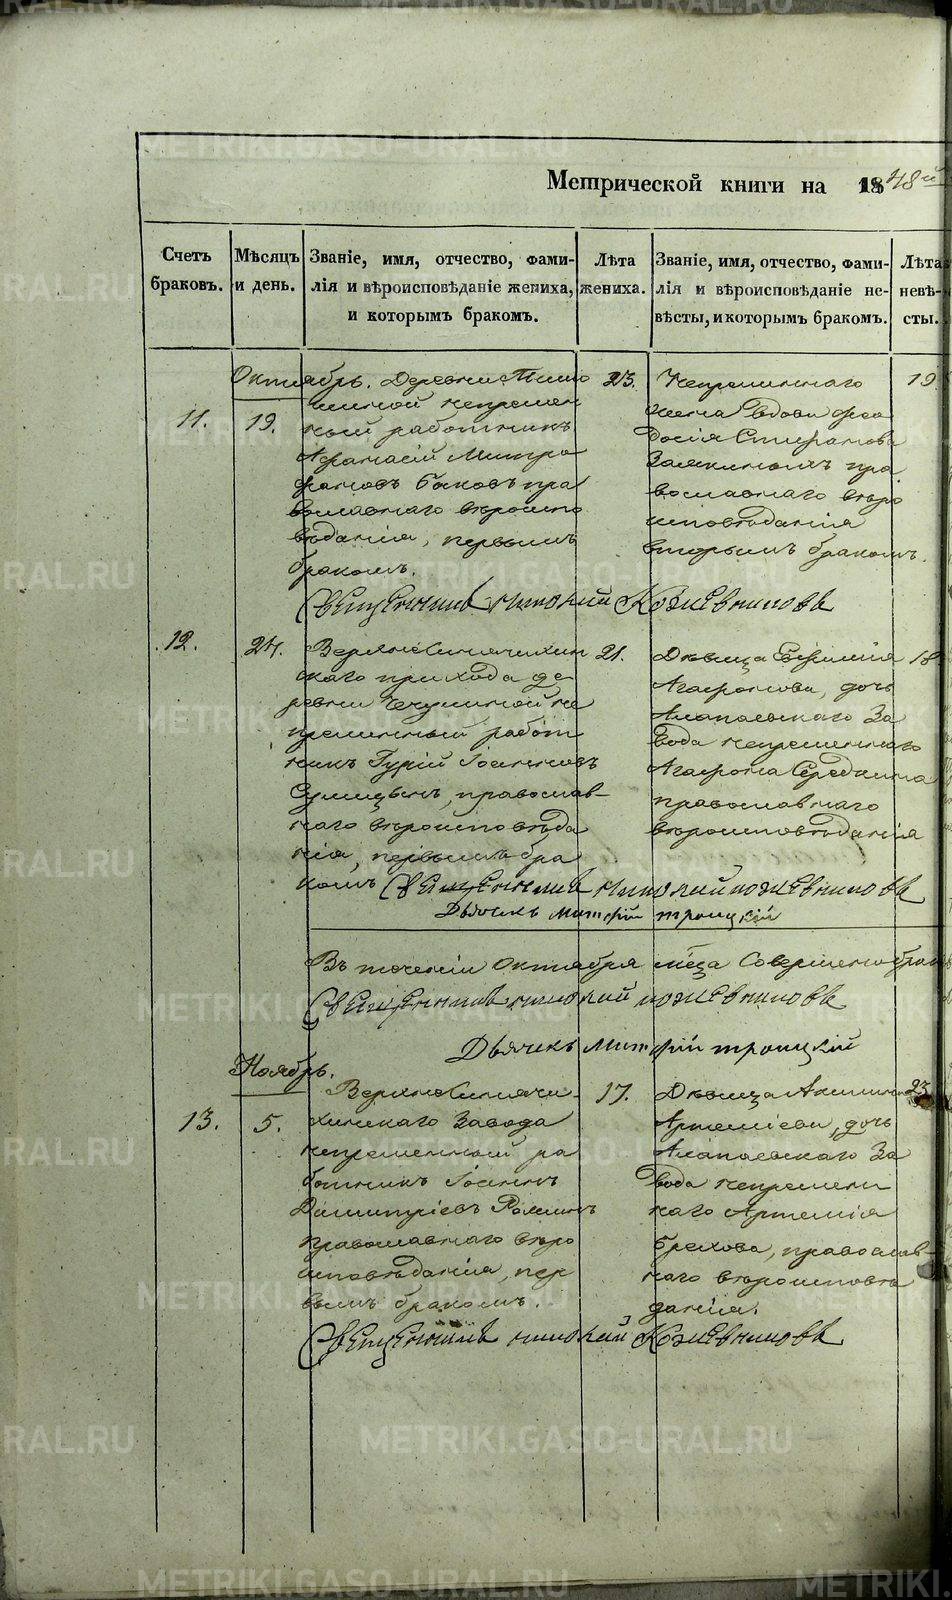 Метрической книги на 1848й
Счетъ браковъ.
Мѣсяцъ и день.
Званіе, имя, отчество, фами-
лія и вѣроисповѣданіе жениха,
и которымъ бракомъ.
Лѣта жениха.
Званіе, имя, отчество, фами-
лія и вѣроисповѣданіе не-
вѣсты, и которымъ бракомъ.
Лѣта невѣ-
сты.
Октябрь.
11.
19.
Деревни
непремен
ный работникъ
Афанасій Митро
фановъ Баковъ пра
вославнаго вѣроиспо
вѣданія, первымъ
бракомъ.
23.
Непременнаго
жена вдова Фео
досія Стефанова
пра
вославнаго вѣро
исповѣданія
вторымъ бракомъ.
19
Священникъ Николай Кожевниковъ
12.
24.
ВерхнеСинячихин
скаго прихода де
ревни не
пременный работ
никъ Гурій Іоанновъ
православ-
наго вѣроисповѣда
нія, первымъ бра
комъ
21.
Дѣвица Евфимія
Агафонова, дочь
Алапаевскаго За
вода непременнаго
Агафона Середкина
православнаго
вѣроисповѣданія
18
Священникъ Николай Кожевниковъ
Дьячекъ Троицкій
Въ теченіи Октября м-ца Совершено брак
Священникъ Николай Кожевниковъ
Дьячекъ Троицкій
Ноябрь.
13.
5.
ВерхнеСинячи-
хинскаго Завода
непременный ра
ботникъ Іоаннъ
Димитріевъ
православнаго вѣро
исповѣданія, пер
вымъ бракомъ.
17.
Дѣвица Акилина
Артеміева, дочь
Алапаевскаго За
вода непремен
наго Артемія
Брехова, православ-
наго вѣроисповѣ
данія.
23
Священникъ Николай Кожевниковъ
METRIKI.GASO-URAL.RU